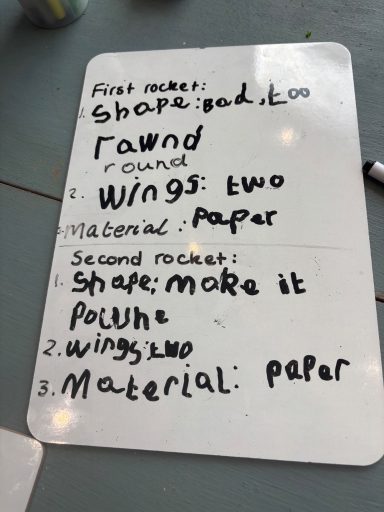 First rocket:
1. Shape: Bad, too
rawnd
round
2. Wings: two
3. Material: Paper
Second rocket:
1. Shape: make it
Powne
2. Wings: two
3. Material: paper